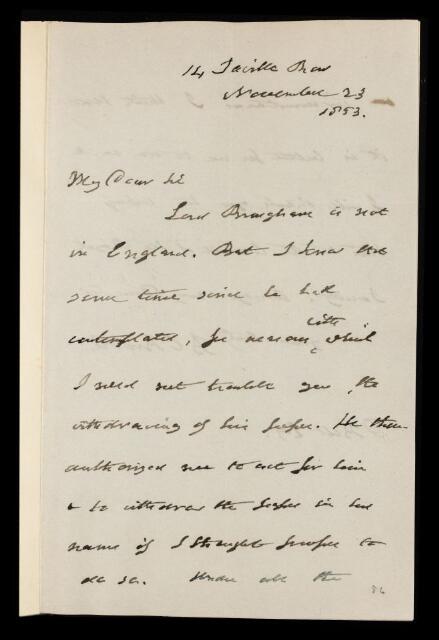 14 Saville Row
November 23
1853.
My Dear Sir
Lord Brougham is not
in England. But I know that
some time since he had
contemplated, for reasons with which
I need not trouble you, the
withdrawing of his paper. He then
authorized me to act for him
& to withdraw the paper in his
name if I thought proper to
do so. Under all the
56